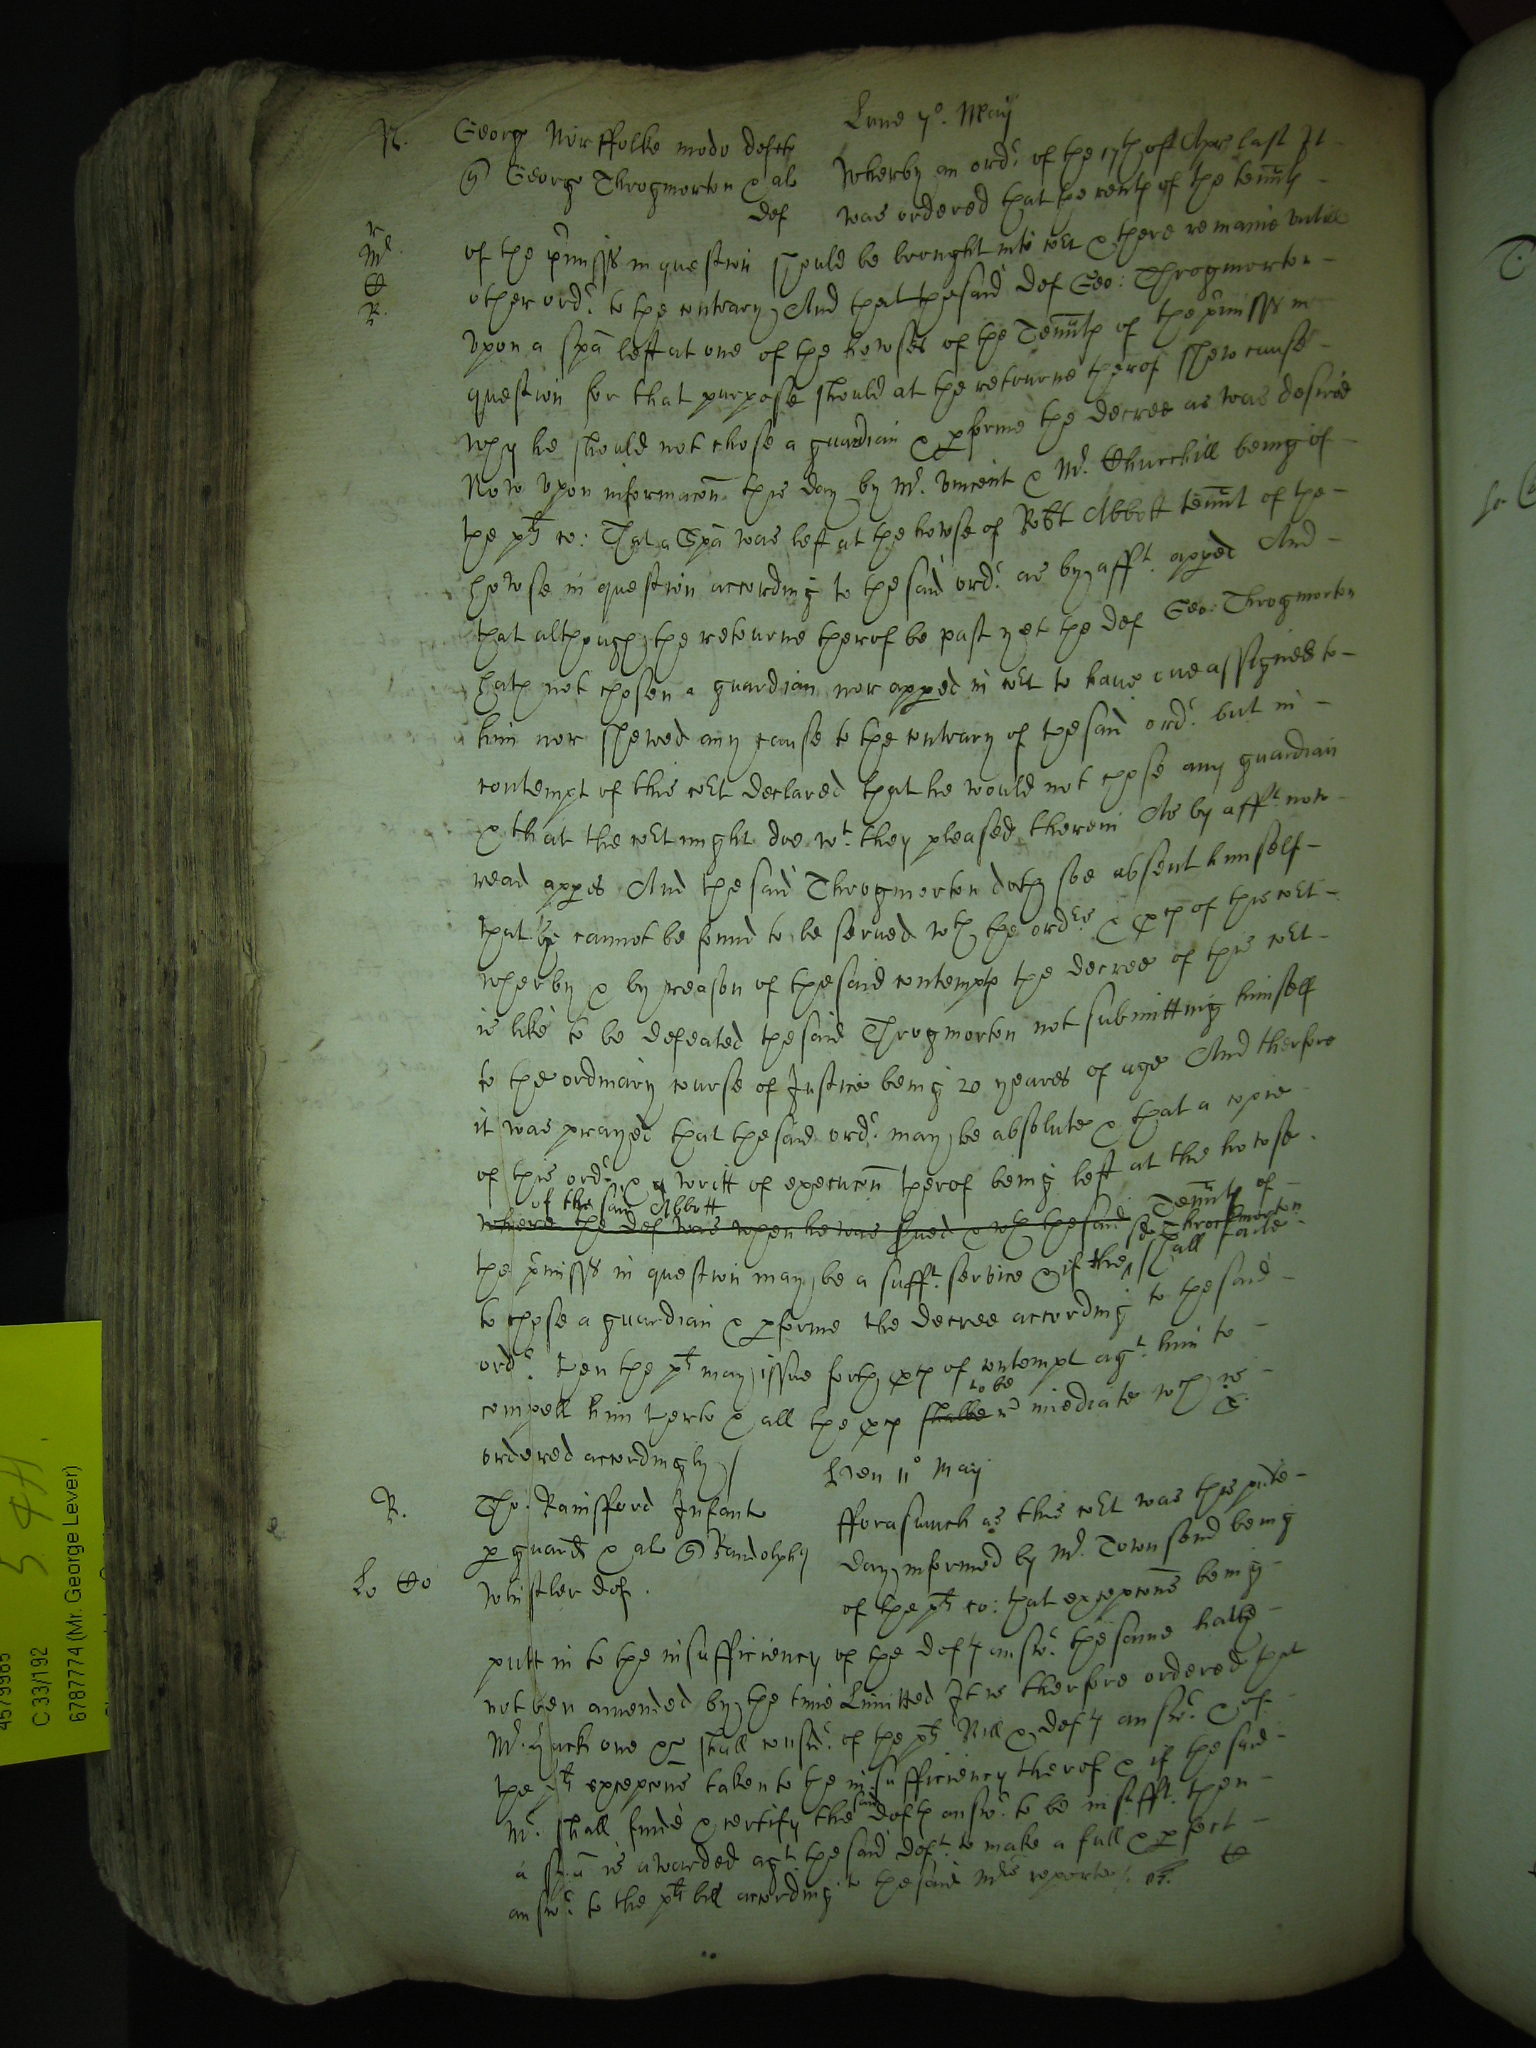 Lune 7o. May
R. George Norffolke modo defts Wherby an ordr. of the 17th of Apr last It
George Throgmorton & al was ordered that the rents of the tennts
def
of the pmisss in question should be brought into cort & there remaine untill
other ordr. to the contrary, And that the said def Geo: Throgmorton
Upon a spa left at one of the howses of the Tennts of the pmisss in
question for that purpose should at the retourne therof shew cause
why he should not chose a guardian & pforme the decree as was desired
Now upon informacon this day by Mr. Vincent & Mr. Churchill being of
the plt co: That a Spa was left at the howse of Robt Abbott tennt of the
howse in question according to the said ordr. as by afft. apped And
that although the retourne therof be past yet the def Geo: Throgmorton
hath not chosen a guardian nor apped in cort to have one assigned to
him nor shewed any cause to the contrary of the said ordr. but in
contempt of this cort declared that he would not chose any guardian
& that the cort might doe wt. they pleased therein As by afft. now
read appes And the said Throgmorton doth soe absent himself
that he cannot be found to be served wth the ordrs & pcs of this cort
wherby & by reason of the said contempts the decree of this cort
is like to be defeated the said Throgmorton not submitting himself
to the ordinary course of Justice being 20 yeares of age And therfore
it was prayed that the said ordr. may be absolute & that a copie
of this ordr. & a writt of execucon therof being left at the howse
of the said Abbott
where the def was when he was sued & wth the said Tennts of
sd Throckmorton
the pmisss in question may be a sufft. service & if the shall faile
to chose a guardian & pforme the decree according to the said
ordr. then the plt may issue forth pcs of contempt agt. him to
to be
compell him therto & all the pcs shalbe imediate wch is
ordered accordingly
R. Ven 11o May
Tho. Rainsford Infant fforasmuch as this cort was this pnte
p guard & al Randolph day informed by Mr. Townsend being
Whistler def. of the plt co: that excepcons being
putt in to the insufficiency of the defts answr. the same hath
not ben amended by the time Limitted It is therfore ordered that
Mr. one &c shall consider. of the plts Bill & defts answr. & of
the plts excepcons taken to the insufficiency therof & if the said
said
Mr. shall finde & certify the defts answr. to be insufft. then
a spa is awarded agt. the said deft. to make a full & pfect
answr. to the plts bill according to the said Mrs reporte
5 4H.
4579985
C 33/192
6787774 (Mr. George Lever)